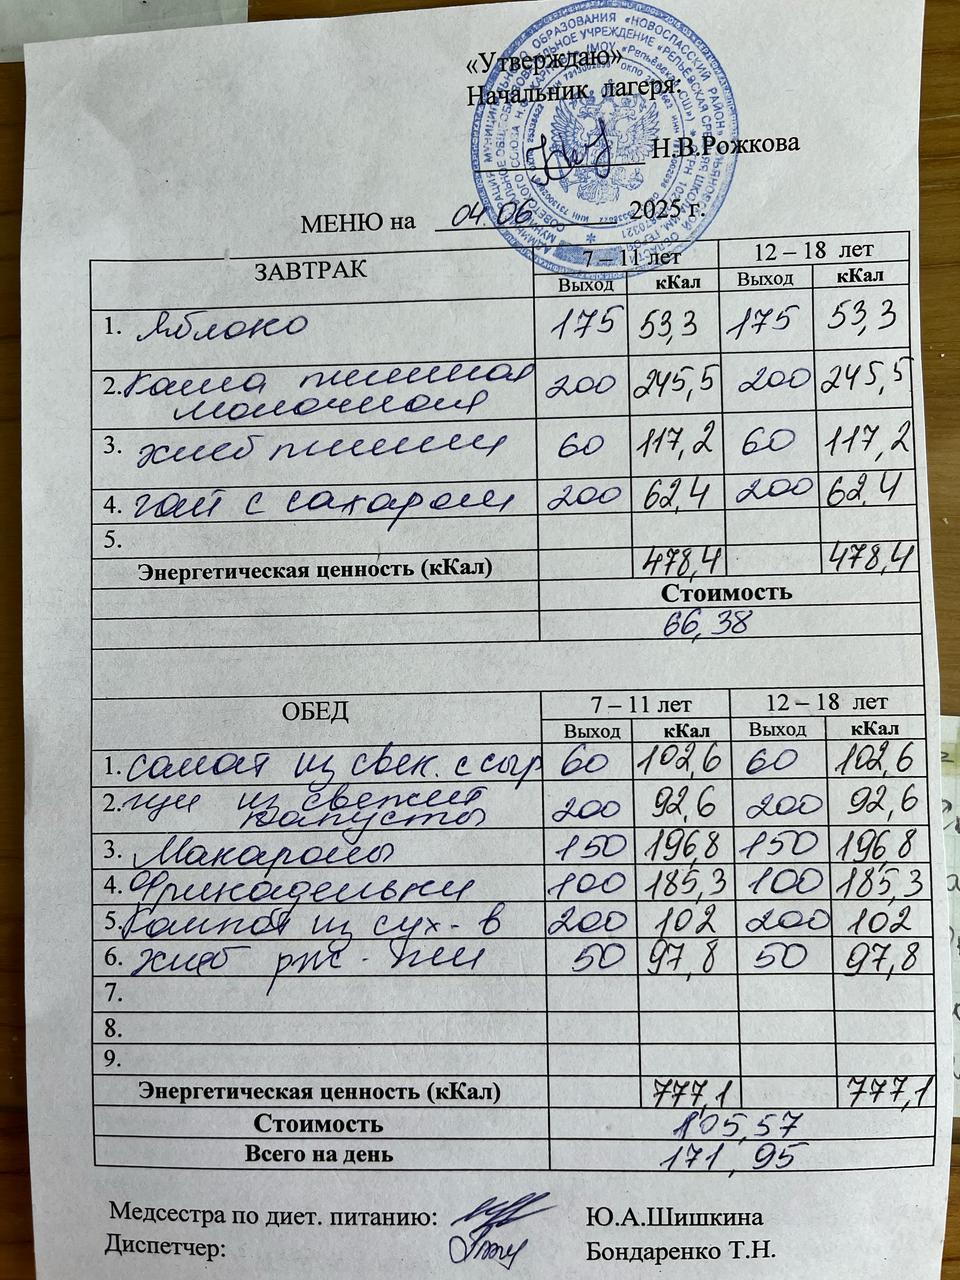 «Утверждаю»
Начальник лагеря:
Н.В.Рожкова
МЕНЮ на 04.06 2025 г.
ЗАВТРАК 7 – 11 лет 12 – 18 лет
Выход кКал Выход кКал
1. Яблоко 175 53,3 175 53,3
2. Каша пшенная 200 245,5 200 245,5
молочная
3. хлеб пшенич 60 117,2 60 117,2
4. чай с сахаром 200 62,4 200 62,4
5.
Энергетическая ценность (кКал) 478,4 478,4
Стоимость
66,38
ОБЕД 7 – 11 лет 12 – 18 лет
Выход кКал Выход кКал
1. салат из свек. с сыр 60 102,6 60 102,6
2. щи из свежей 200 92,6 200 92,6
капусты
3. Макароны 150 196,8 150 196,8
4. Фрикадельки 100 185,3 100 185,3
5. Компот из сух-в 200 102 200 102
6. хлеб рж-пш 50 97,8 50 97,8
7.
8.
9.
Энергетическая ценность (кКал) 777,1 777,1
Стоимость 105,57
Всего на день 171,95
Медсестра по диет. питанию: Ю.А.Шишкина
Диспетчер: Бондаренко Т.Н.